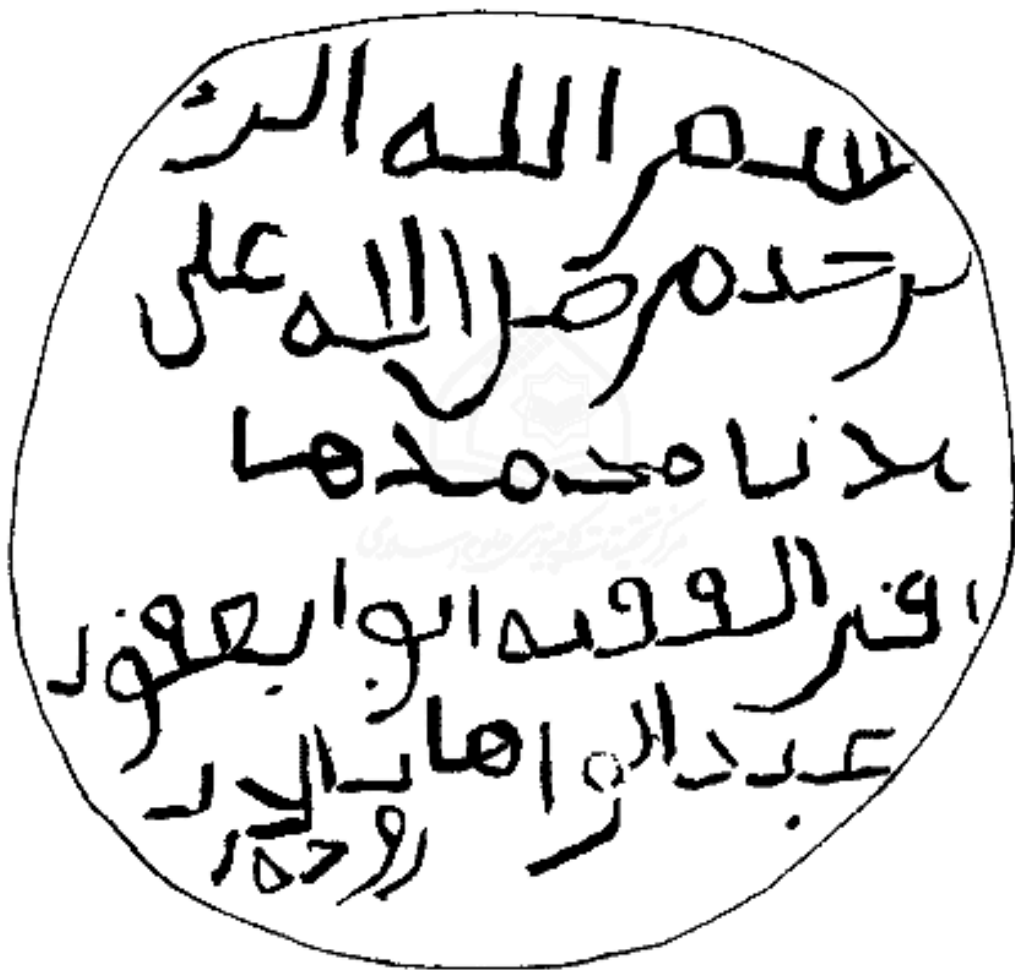 بسم الله الر
حيم صل الله على
يدنا محمد ها
ا قبر الفقيه ابو ا يعقو
عبد الو ا هاب
مرکز تحقیقات کامپیوتری علوم اسلامی